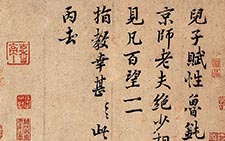 兒子賦性魯鈍
京師老夫絕少相
見凡百望一一
指教幸甚幸甚此
丙去